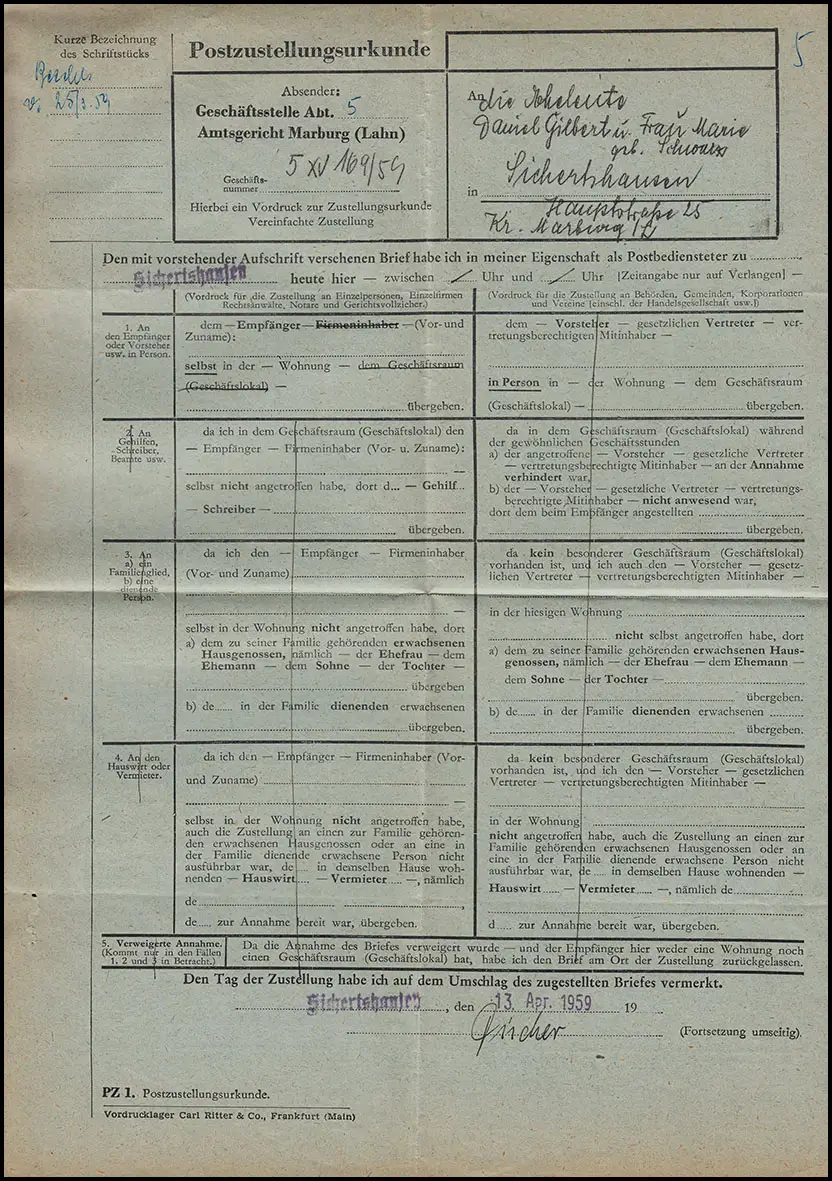 Kurze Bezeichnung
des Schriftstücks
v. 25/3.59
Postzustellungsurkunde
5
Absender:
Geschäftsstelle Abt. 5
Amtsgericht Marburg (Lahn)
Geschäfts-
nummer 5 XV 169/59
Hierbei ein Vordruck zur Zustellungsurkunde
Vereinfachte Zustellung
An die Eheleute
Daniel Gilbert u. Frau Marie
geb. Schwarz
in Sichertshausen
Hauptstraße 25
Kr. Marburg /L
Den mit vorstehender Aufschrift versehenen Brief habe ich in meiner Eigenschaft als Postbediensteter zu
Sichertshausen heute hier — zwischen / Uhr und / Uhr [Zeitangabe nur auf Verlangen] —
(Vordruck für die Zustellung an Einzelpersonen, Einzelfirmen
Rechtsanwälte, Notare und Gerichtsvollzieher.)
(Vordruck für die Zustellung an Behörden, Gemeinden, Korporationen
und Vereine [einschl. der Handelsgesellschaft usw.])
1. An
den Empfänger
oder Vorsteher
usw. in Person.
dem — Empfänger — Firmeninhaber — (Vor- und
Zuname):
selbst in der — Wohnung — dem Geschäftsraum
(Geschäftslokal) —
übergeben.
dem — Vorsteher — gesetzlichen Vertreter — ver-
tretungsberechtigten Mitinhaber —
in Person in — der Wohnung — dem Geschäftsraum
(Geschäftslokal) — übergeben.
2. An
Gehilfen,
Schreiber,
Beamte usw.
da ich in dem Geschäftsraum (Geschäftslokal) den
— Empfänger — Firmeninhaber (Vor- u. Zuname):
—
selbst nicht angetroffen habe, dort d... — Gehilf...
— Schreiber —
übergeben.
da in dem Geschäftsraum (Geschäftslokal) während
der gewöhnlichen Geschäftsstunden
a) der angetroffene — Vorsteher — gesetzliche Vertreter
— vertretungsberechtigte Mitinhaber — an der Annahme
verhindert war,
b) der — Vorsteher — gesetzliche Vertreter — vertretungs-
berechtigte Mitinhaber — nicht anwesend war,
dort dem beim Empfänger angestellten
übergeben.
3. An
a) ein
Familienglied,
b) eine
dienende
Person.
da ich den — Empfänger — Firmeninhaber
(Vor- und Zuname)
—
selbst in der Wohnung nicht angetroffen habe, dort
a) dem zu seiner Familie gehörenden erwachsenen
Hausgenossen, nämlich — der Ehefrau — dem
Ehemann — dem Sohne — der Tochter —
übergeben
b) de...... in der Familie dienenden erwachsenen
übergeben.
da kein besonderer Geschäftsraum (Geschäftslokal)
vorhanden ist, und ich auch den — Vorsteher — gesetz-
lichen Vertreter — vertretungsberechtigten Mitinhaber —
in der hiesigen Wohnung
nicht selbst angetroffen habe, dort
a) dem zu seiner Familie gehörenden erwachsenen Haus-
genossen, nämlich — der Ehefrau — dem Ehemann —
dem Sohne — der Tochter —
übergeben.
b) de...... in der Familie dienenden erwachsenen
übergeben.
4. An den
Hauswirt oder
Vermieter.
da ich den — Empfänger — Firmeninhaber (Vor-
und Zuname)
—
selbst in der Wohnung nicht angetroffen habe,
auch die Zustellung an einen zur Familie gehören-
den erwachsenen Hausgenossen oder an eine in
der Familie dienende erwachsene Person nicht
ausführbar war, de...... in demselben Hause woh-
nenden — Hauswirt...... — Vermieter...... —, nämlich
de
de...... zur Annahme bereit war, übergeben.
da kein besonderer Geschäftsraum (Geschäftslokal)
vorhanden ist, und ich den — Vorsteher — gesetzlichen
Vertreter — vertretungsberechtigten Mitinhaber —
in der Wohnung
nicht angetroffen habe, auch die Zustellung an einen zur
Familie gehörenden erwachsenen Hausgenossen oder an
eine in der Familie dienende erwachsene Person nicht
ausführbar war, de...... in demselben Hause wohnenden —
Hauswirt...... — Vermieter...... —, nämlich de
d...... zur Annahme bereit war, übergeben.
5. Verweigerte Annahme.
(Kommt nur in den Fällen
1, 2 und 3 in Betracht.)
Da die Annahme des Briefes verweigert wurde — und der Empfänger hier weder eine Wohnung noch
einen Geschäftsraum (Geschäftslokal) hat, habe ich den Brief am Ort der Zustellung zurückgelassen.
Den Tag der Zustellung habe ich auf dem Umschlag des zugestellten Briefes vermerkt.
Sichertshausen, den 13. Apr. 1959 19
(Fortsetzung umseitig).
PZ 1. Postzustellungsurkunde.
Vordrucklager Carl Ritter & Co., Frankfurt (Main)